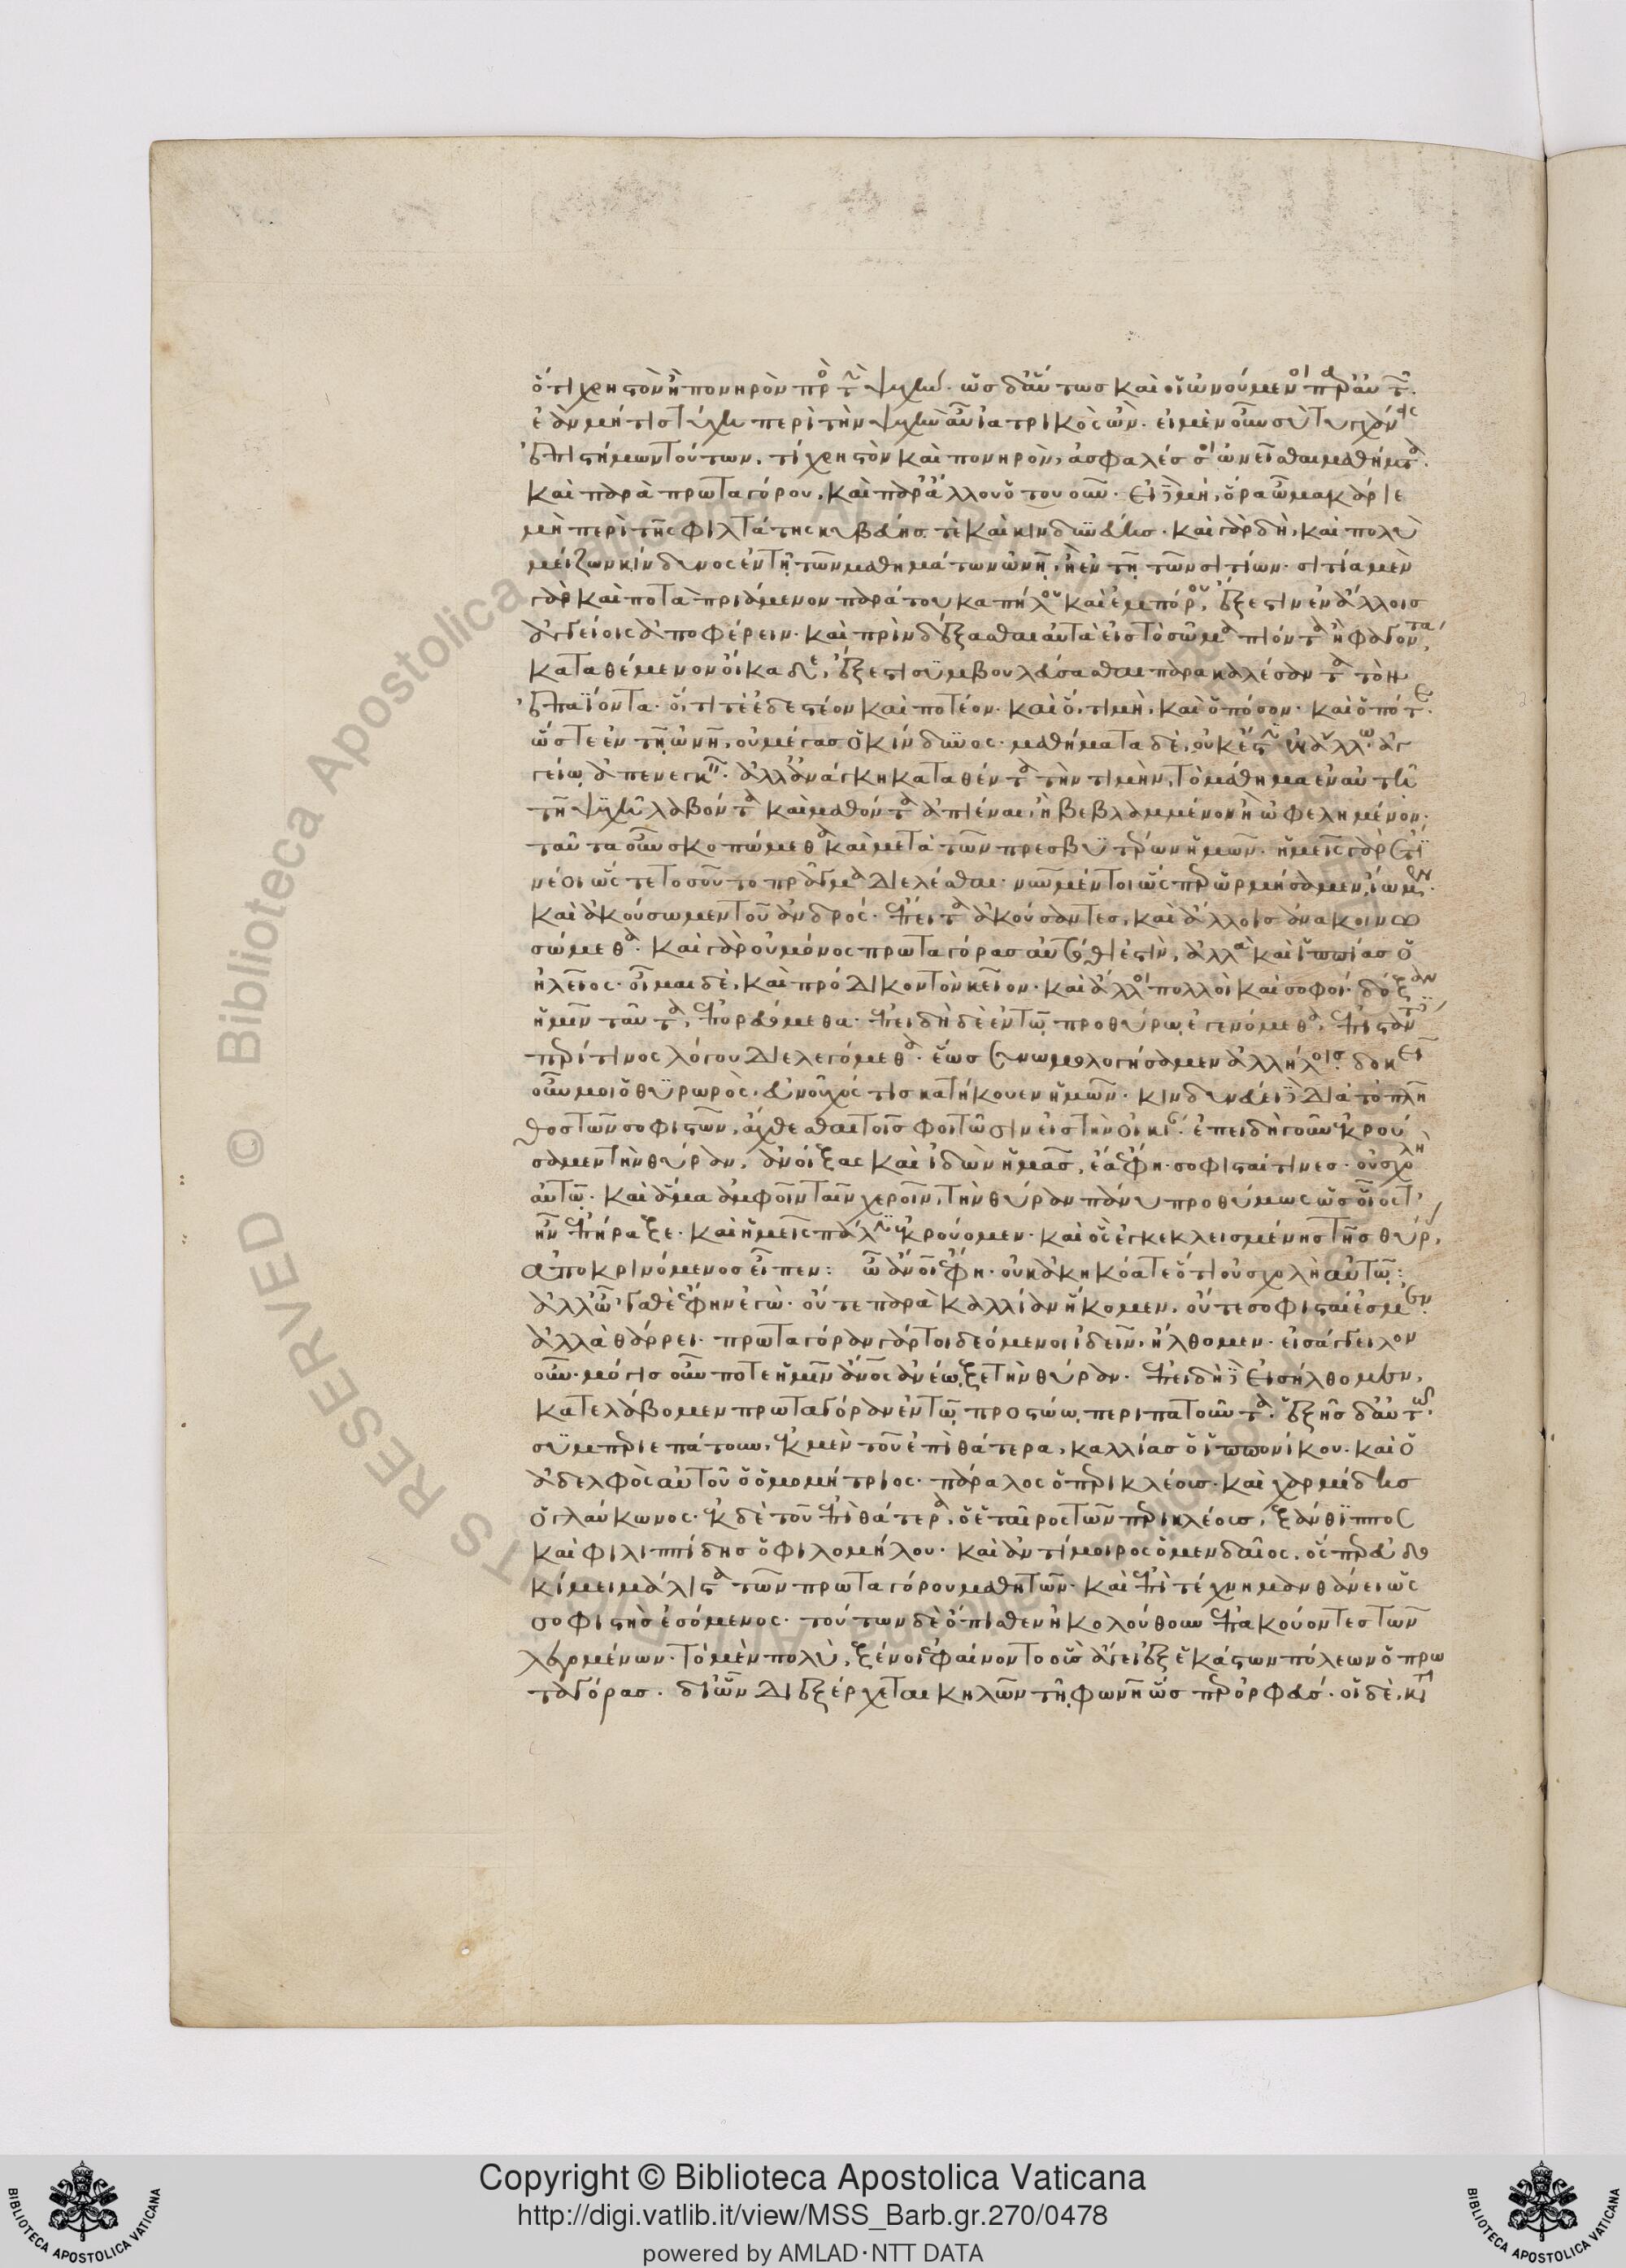 ὅτι χρηστὸν ἢ πονηρὸν πρὸς τὴν ψυχήν. ὡς δ' αὕτως καὶ οἱ ὠνούμενοι παρ' αὐτῶν.
ἐὰν μή τις τύχῃ περὶ τὴν ψυχὴν αὖ ἰατρικὸς ὤν. εἰ μὲν οὖν σὺ τυγχάνεις
ἐπιστήμων τούτων, τί χρηστὸν καὶ πονηρὸν, ἀσφαλές σοι ὠνεῖσθαι μαθήματα.
καὶ παρὰ πρωταγόρου, καὶ παρ' ἄλλου ὅτου οὖν. εἰ δὲ μή, ὅρα ὦ μακάριε
μὴ περὶ τῆς φιλτάτης κυβεύῃς τὲ καὶ κινδυνεύῃς. καὶ γὰρ δὴ, καὶ πολὺ
μείζων κίνδυνος ἐν τῇ τῶν μαθημάτων ὠνῇ, ἢ ἐν τῇ τῶν σιτίων. σιτία μὲν
γὰρ καὶ ποτὰ πριάμενον παρὰ του καπήλου καὶ ἐμπόρου, ἔξεστιν ἐν ἄλλοις
ἀγγείοις ἀποφέρειν. καὶ πρὶν δέξασθαι αὐτὰ εἰς τὸ σῶμα πιόντα ἢ φαγόντα,
καταθέμενον οἴκαδε, ἔξεστι συμβουλεύσασθαι παρακαλέσαντα τὸν
ἐπαΐοντα. ὅ, τι τε ἐδεστέον καὶ ποτέον. καὶ ὅ, τι μὴ, καὶ ὁπόσον. καὶ ὁπότε.
ὥστε ἐν τῇ ὠνῇ, οὐ μέγας ὁ κίνδυνος. μαθήματα δὲ, οὐκ ἔστιν ἐν ἄλλῳ ἀγ
γείῳ ἀπενεγκεῖν. ἀλλ' ἀνάγκη καταθέντα τὴν τιμὴν, τὸ μάθημα ἐν αὐτῇ
τῇ ψυχῇ λαβόντα καὶ μαθόντα ἀπιέναι, ἢ βεβλαμμένον ἢ ὠφελημένον.
ταῦτα οὖν σκοπώμεθα καὶ μετὰ τῶν πρεσβυτέρων ἡμῶν. ἡμεῖς γὰρ ἔτι
νέοι ὥς τε τοσοῦτο πρᾶγμα διελέσθαι. νῦν μέντοι ὥσπερ ὡρμήσαμεν, ἴωμεν.
καὶ ἀκούσωμεν τοῦ ἀνδρός. ἔπειτα ἀκούσαντες, καὶ ἄλλοις ἀνακοινω
σώμεθα. καὶ γὰρ οὐ μόνος πρωταγόρας αὐτόθι ἐστὶν, ἀλλὰ καὶ ἱππίας ὁ
ἠλεῖος. οἶμαι δὲ, καὶ πρόδικον τὸν κεῖον. καὶ ἄλλοι πολλοὶ καὶ σοφοί. δόξαν
ἡμῖν ταῦτα, ἐπορευόμεθα. ἐπειδὴ δὲ ἐν τῷ προθύρῳ ἐγενόμεθα, ἐπιστάντες
περί τινος λόγου διελεγόμεθα. ἕως συνωμολογήσαμεν ἀλλήλοις. δοκεῖ
οὖν μοι ὁ θυρωρὸς, εὐνοῦχός τις κατήκουεν ἡμῶν. κινδυνεύει δὲ διὰ τὸ πλῆ
θος τῶν σοφιστῶν, ἄχθεσθαι τοῖς φοιτῶσιν εἰς τὴν οἰκίαν. ἐπειδὴ γοῦν ἐκρού
σαμεν τὴν θύραν, ἀνοίξας καὶ ἰδὼν ἡμᾶς, ἔα ἔφη. σοφισταί τινες. οὐ σχολὴ
αὐτῷ. καὶ ἅμα ἀμφοῖν ταῖν χεροῖν, τὴν θύραν πάνυ προθύμως ὡς οἷός τ'
ἦν ἐπήραξε. καὶ ἡμεῖς πάλιν ἐκρούομεν. καὶ ὃς ἐγκεκλεισμένης τῆς θύρας,
ἀποκρινόμενος εἶπεν: ὦ ἄνοι ἔφη. οὐκ ἀκηκόατε ὅτι οὐ σχολὴ αὐτῷ:
ἀλλ' ὦ 'γαθὲ ἔφην ἐγὼ. οὔτε παρὰ καλλίαν ἥκομεν, οὔτε σοφισταί ἐσμεν.
ἀλλὰ θάρρει. πρωταγόραν γάρ τοι δεόμενοι ἰδεῖν, ἤλθομεν. εἰσάγγειλον
οὖν. μόγις οὖν ποτε ἡμῖν ἄνος ἀνέῳξε τὴν θύραν. ἐπειδὴ δὲ εἰσήλθομεν,
κατελάβομεν πρωταγόραν ἐν τῷ προστώῳ περιπατοῦντα. ἑξῆς δ' αὐτῷ.
συμπεριεπάτουν, ἐκ μὲν τοῦ ἐπὶ θάτερα, καλλίας ὁ ἱππονίκου. καὶ ὁ
ἀδελφὸς αὐτοῦ ὁ ὁμομήτριος. πάραλος ὁ περικλέους. καὶ χαρμίδης
ὁ γλαύκωνος. ἐκ δὲ τοῦ ἐπὶ θάτερα, ὁ ἕταῖρος τῶν περικλέους, ξάνθιππος
καὶ φιλιππίδης ὁ φιλομήλου. καὶ ἀντίμοιρος ὁ μενδαῖος. ὅσπερ εὐδο
κίμει μάλιστα τῶν πρωταγόρου μαθητῶν. καὶ ἐπὶ τέχνῃ μανθάνει ὡς
σοφιστὴς ἐσόμενος. τούτων δὲ ὄπισθεν ἠκολούθουν ἐπακούοντες τῶν
λεγομένων. τὸ μὲν πολὺ, ξένοι ἐφαίνοντο οὓς ἄγει ἐξ ἑκάστων πόλεων ὁ πρω
ταγόρας. δι' ὧν διεξέρχεται κηλῶν τῇ φωνῇ ὥσπερ ὀρφεύς. οἱ δὲ, κατὰ
Copyright © Biblioteca Apostolica Vaticana
http://digi.vatlib.it/view/MSS_Barb.gr.270/0478
powered by AMLAD·NTT DATA
BIBLIOTECA APOSTOLICA VATICANA
BIBLIOTECA APOSTOLICA VATICANA